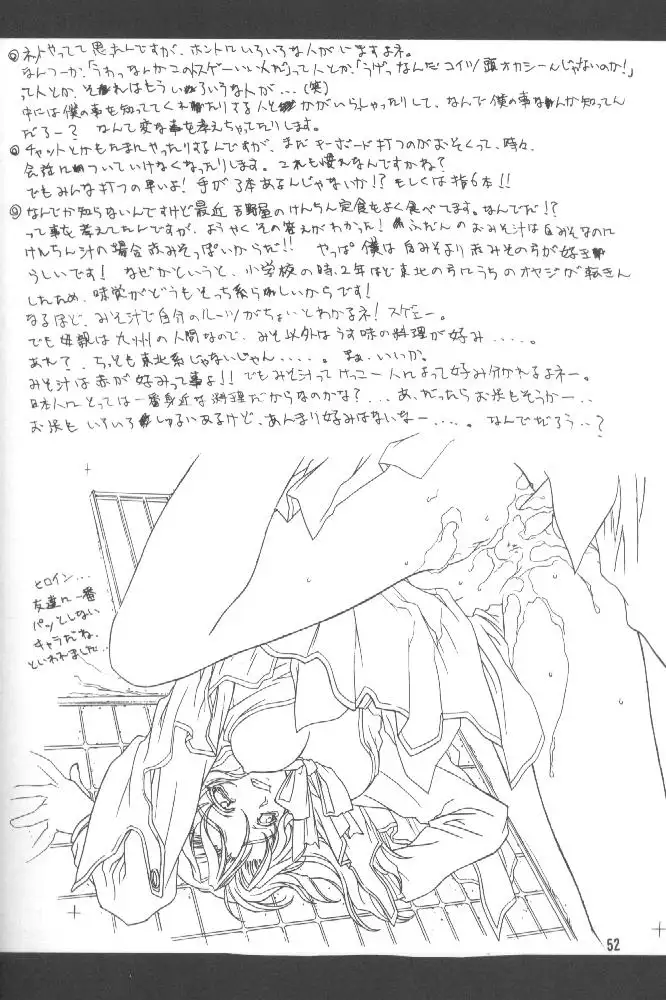 ◎ネットやってて思ったんですが、ホントにいろいろな人がいますよネ。
なんつーか、「うわっなんかこのスゲーいい人だ」って人とか、「うげっなんだコイツ!頭オカシーんじゃないのか!」
って人とか、それはもういろいろな人が…(笑)
中には僕の事を知っててくれたりする人とかがいらっしゃったりして、なんで僕の事なんか知ってん
だろー? なんて変な事を考えちゃってたりします。
◎チャットとかもたまにやったりするんですが、まだキーボード打つのがおそくって、時々、
会話についていけなくなったりします。これも慣れなんですかね?
でもみんな打つの早いよ!手が3本あるんじゃないか!?もしくは指6本!!
◎なんでか知らないんですけど最近吉野屋のけんちん定食をよく食べてます。なんでだ!?
って事を考えてたんですが、ようやくその答えがわかった!ふだんのおみそ汁は白みそなのに
けんちん汁の場合赤みそっぽいからだ!! やっぱ僕は白みそより赤みその方が好き
らしいです!なぜかというと、小学校の時、2年ほど東北の方にうちのオヤジが転きん
したため、味覚がどうもそっち系らしいからです!
なるほど、みそ汁で自分のルーツがちょいとわかるネ!スゲェー。
でも母親は九州の人間なので、みそ以外はうす味の料理が好み……。
あれ? ちっとも東北系じゃないじゃん……。まぁ、いいか。
みそ汁は赤が好みって事よ!!でもみそ汁ってけっこー人によって好み分かれるよネー。
日本人にとっては一番身近な料理だからなのかな?...あ、だったらお米もそうかー..
お米もいろいろしゅるいあるけど、あんまり好みはないなー....。なんでだろう..?
ヒロイン...
友達に一番
パッとしない
キャラだね、
といわれました...
52